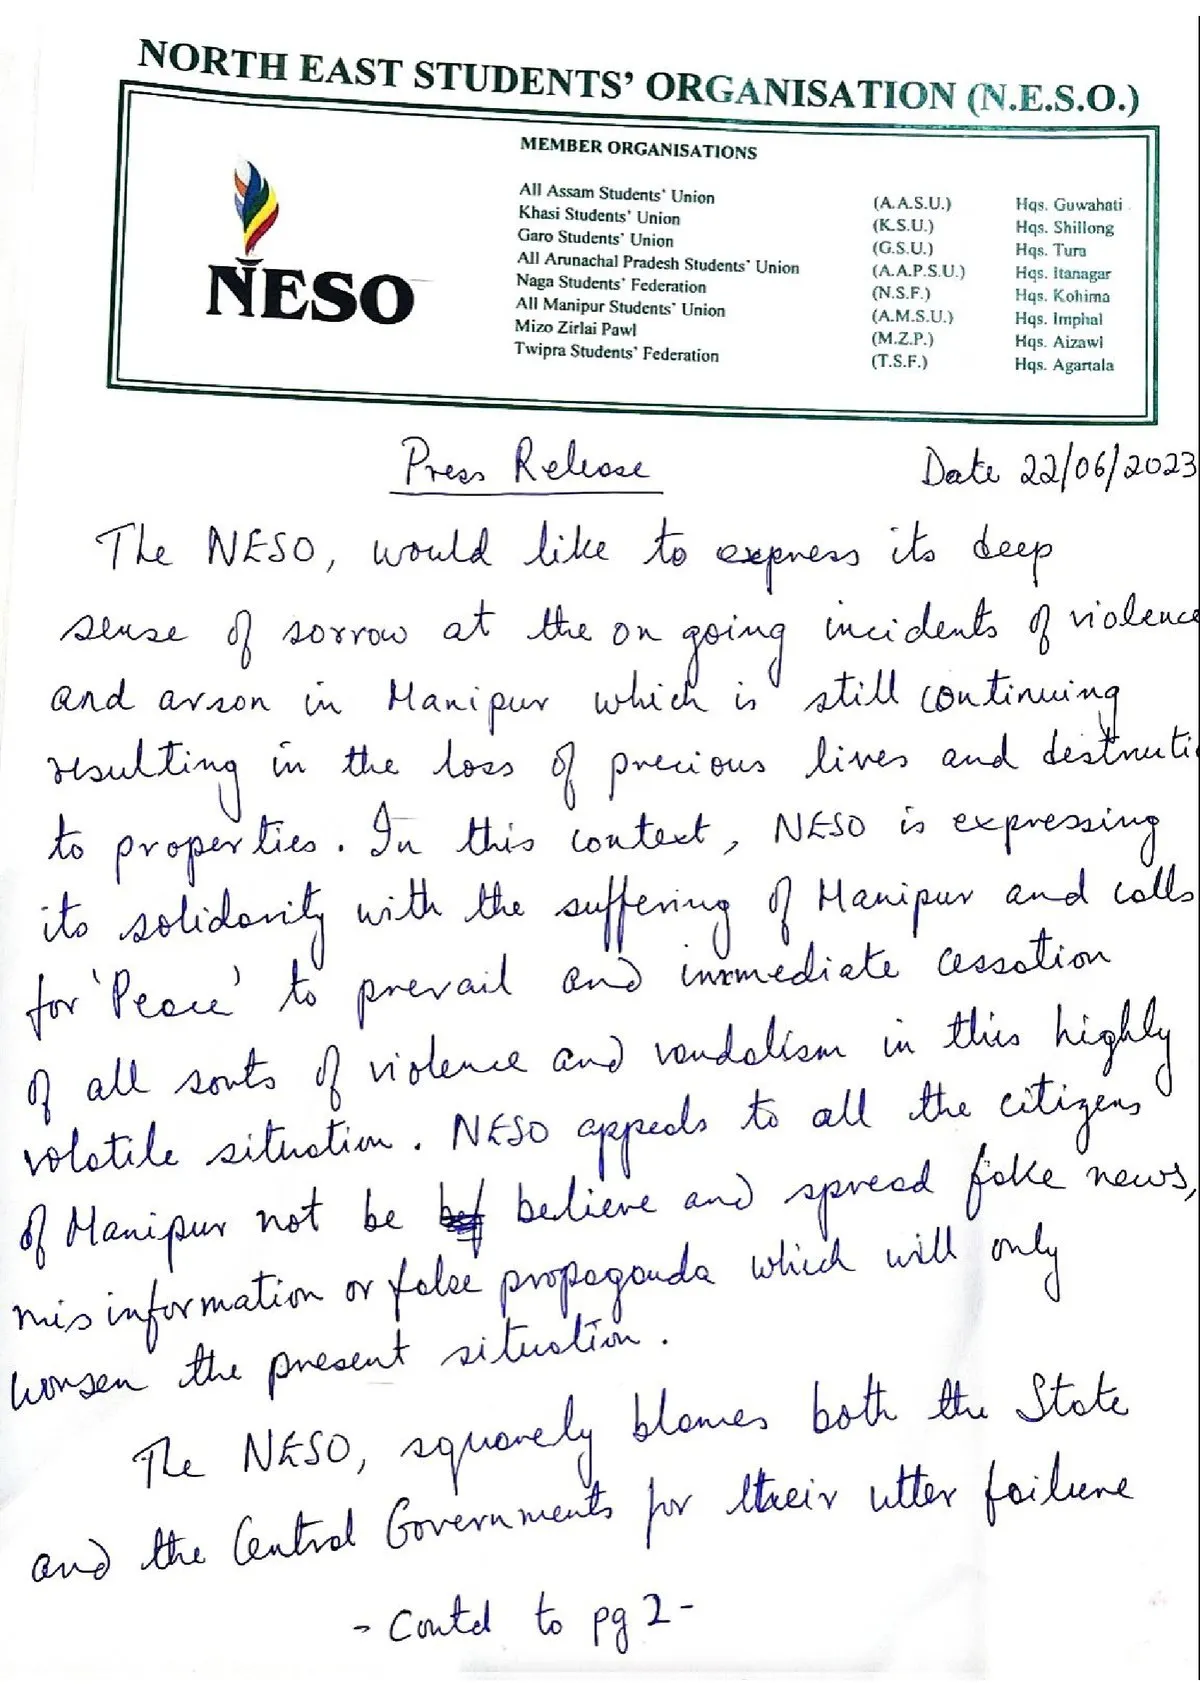 NORTH EAST STUDENTS' ORGANISATION (N.E.S.O.)
NESO
MEMBER ORGANISATIONS
All Assam Students' Union (A.A.S.U.) Hqs. Guwahati
Khasi Students' Union (K.S.U.) Hqs. Shillong
Garo Students' Union (G.S.U.) Hqs. Tura
All Arunachal Pradesh Students' Union (A.A.P.S.U.) Hqs. Itanagar
Naga Students' Federation (N.S.F.) Hqs. Kohima
All Manipur Students' Union (A.M.S.U.) Hqs. Imphal
Mizo Zirlai Pawl (M.Z.P.) Hqs. Aizawl
Twipra Students' Federation (T.S.F.) Hqs. Agartala
Press Release Date 22/06/2023
The NESO, would like to express its deep
sense of sorrow at the on going incidents of violence
and arson in Manipur which is still continuing
resulting in the loss of precious lives and destructi
to properties. In this context, NESO is expressing
its solidarity with the suffering of Manipur and calls
for 'Peace' to prevail and immediate cessation
of all sorts of violence and vandalism in this highly
volatile situation. NESO appeals to all the citizens
of Manipur not be believe and spread fake news,
mis information or false propaganda which will only
worsen the present situation.
The NESO, squarely blames both the State
and the Central Governments for their utter failure
- Contd to pg 2 -